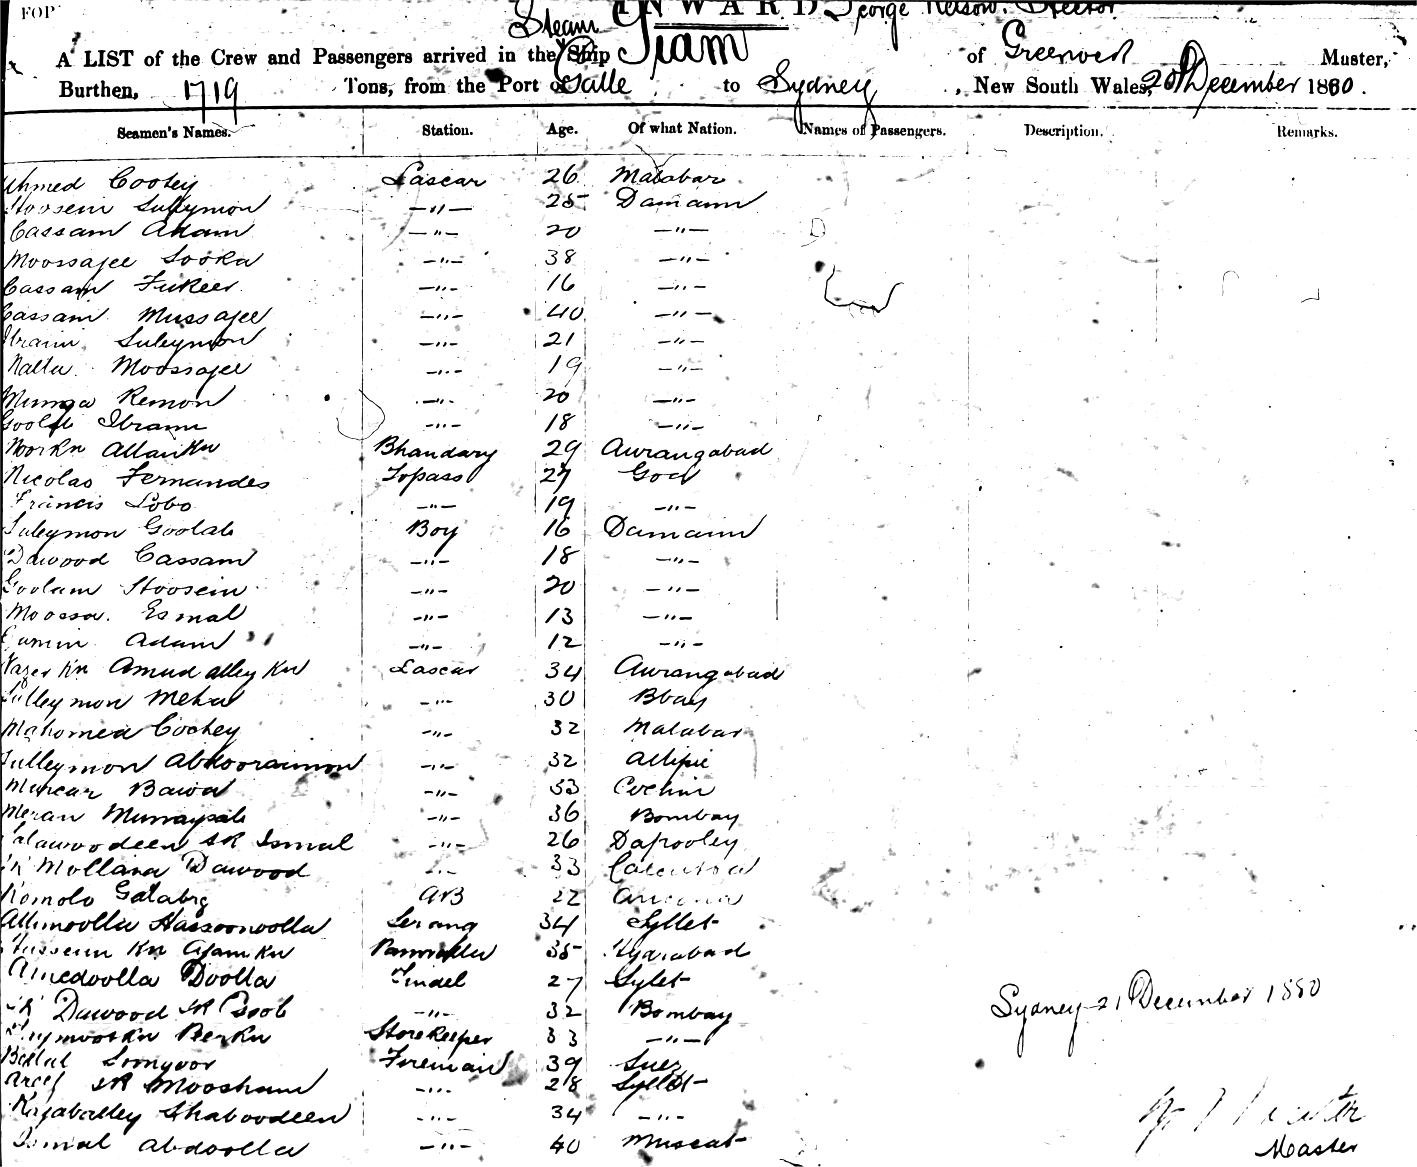 FOP
INWARD George Kelson. Director.
A LIST of the Crew and Passengers arrived in the Steam Ship Siam of Greenock Muster,
Burthen, 1719 Tons, from the Port of Galle to Sydney, New South Wales, 20th December 1880.
Seamen's Names. Station. Age. Of what Nation. Names of Passengers. Description. Remarks.
Ahmed Cootey Lascar 26 Malabar
Hoosein Sulleymon —"— 25 Damann
Cassam Adam —"— 20 —"—
Moosajee Sooka —"— 38 —"—
Cassam Fukeer —"— 16 —"—
Cassam Mussajee —"— 40 —"—
Ibraim Suleymon —"— 21 —"—
Natta Moosajee —"— 19 —"—
Munga Remon —"— 20 —"—
Goolab Ibram —"— 18 —"—
Noorkn Allankn Bhandary 29 Aurangabad
Nicolas Fernandes Topass 27 Goa
Francis Lobo —"— 19 —"—
Suleymon Goolab Boy 16 Damann
Dawood Cassam —"— 18 —"—
Goolam Hoosein —"— 20 —"—
Moossa Esmal —"— 13 —"—
Adam —"— 12 —"—
Kn Amudalley Kn Lascar 34 Aurangabad
Sulleymon Meha —"— 30 Bbay
Mahomed Cootey —"— 32 Malabar
Sulleymon Abdooraimon —"— 32 Allipie
Murcar Bawa —"— 33 Cochin
Meran —"— 36 Bombay
SK Ismal —"— 26 Dapooley
SK Mollana Dawood —"— 33 Calcutta
Romolo AB 22 Ancona
Allimoolla Hassoonoolla Serang 34 Syllet
Husseim Kn Ajamkn 35 Hydrabad
Amedoolla Doolla Tindel 27 Sylet
SK Dawood SK Esoob —"— 32 Bombay
Peerkn Storekeeper 33 —"—
Belal Soongoor Fireman 39 Suez
Areef SK Moosham —"— 28 Syllet
Rajaballey Shaboodeen —"— 34 —"—
Ismal Abdoolla —"— 40 Muscat
Sydney 21 December 1880
Master